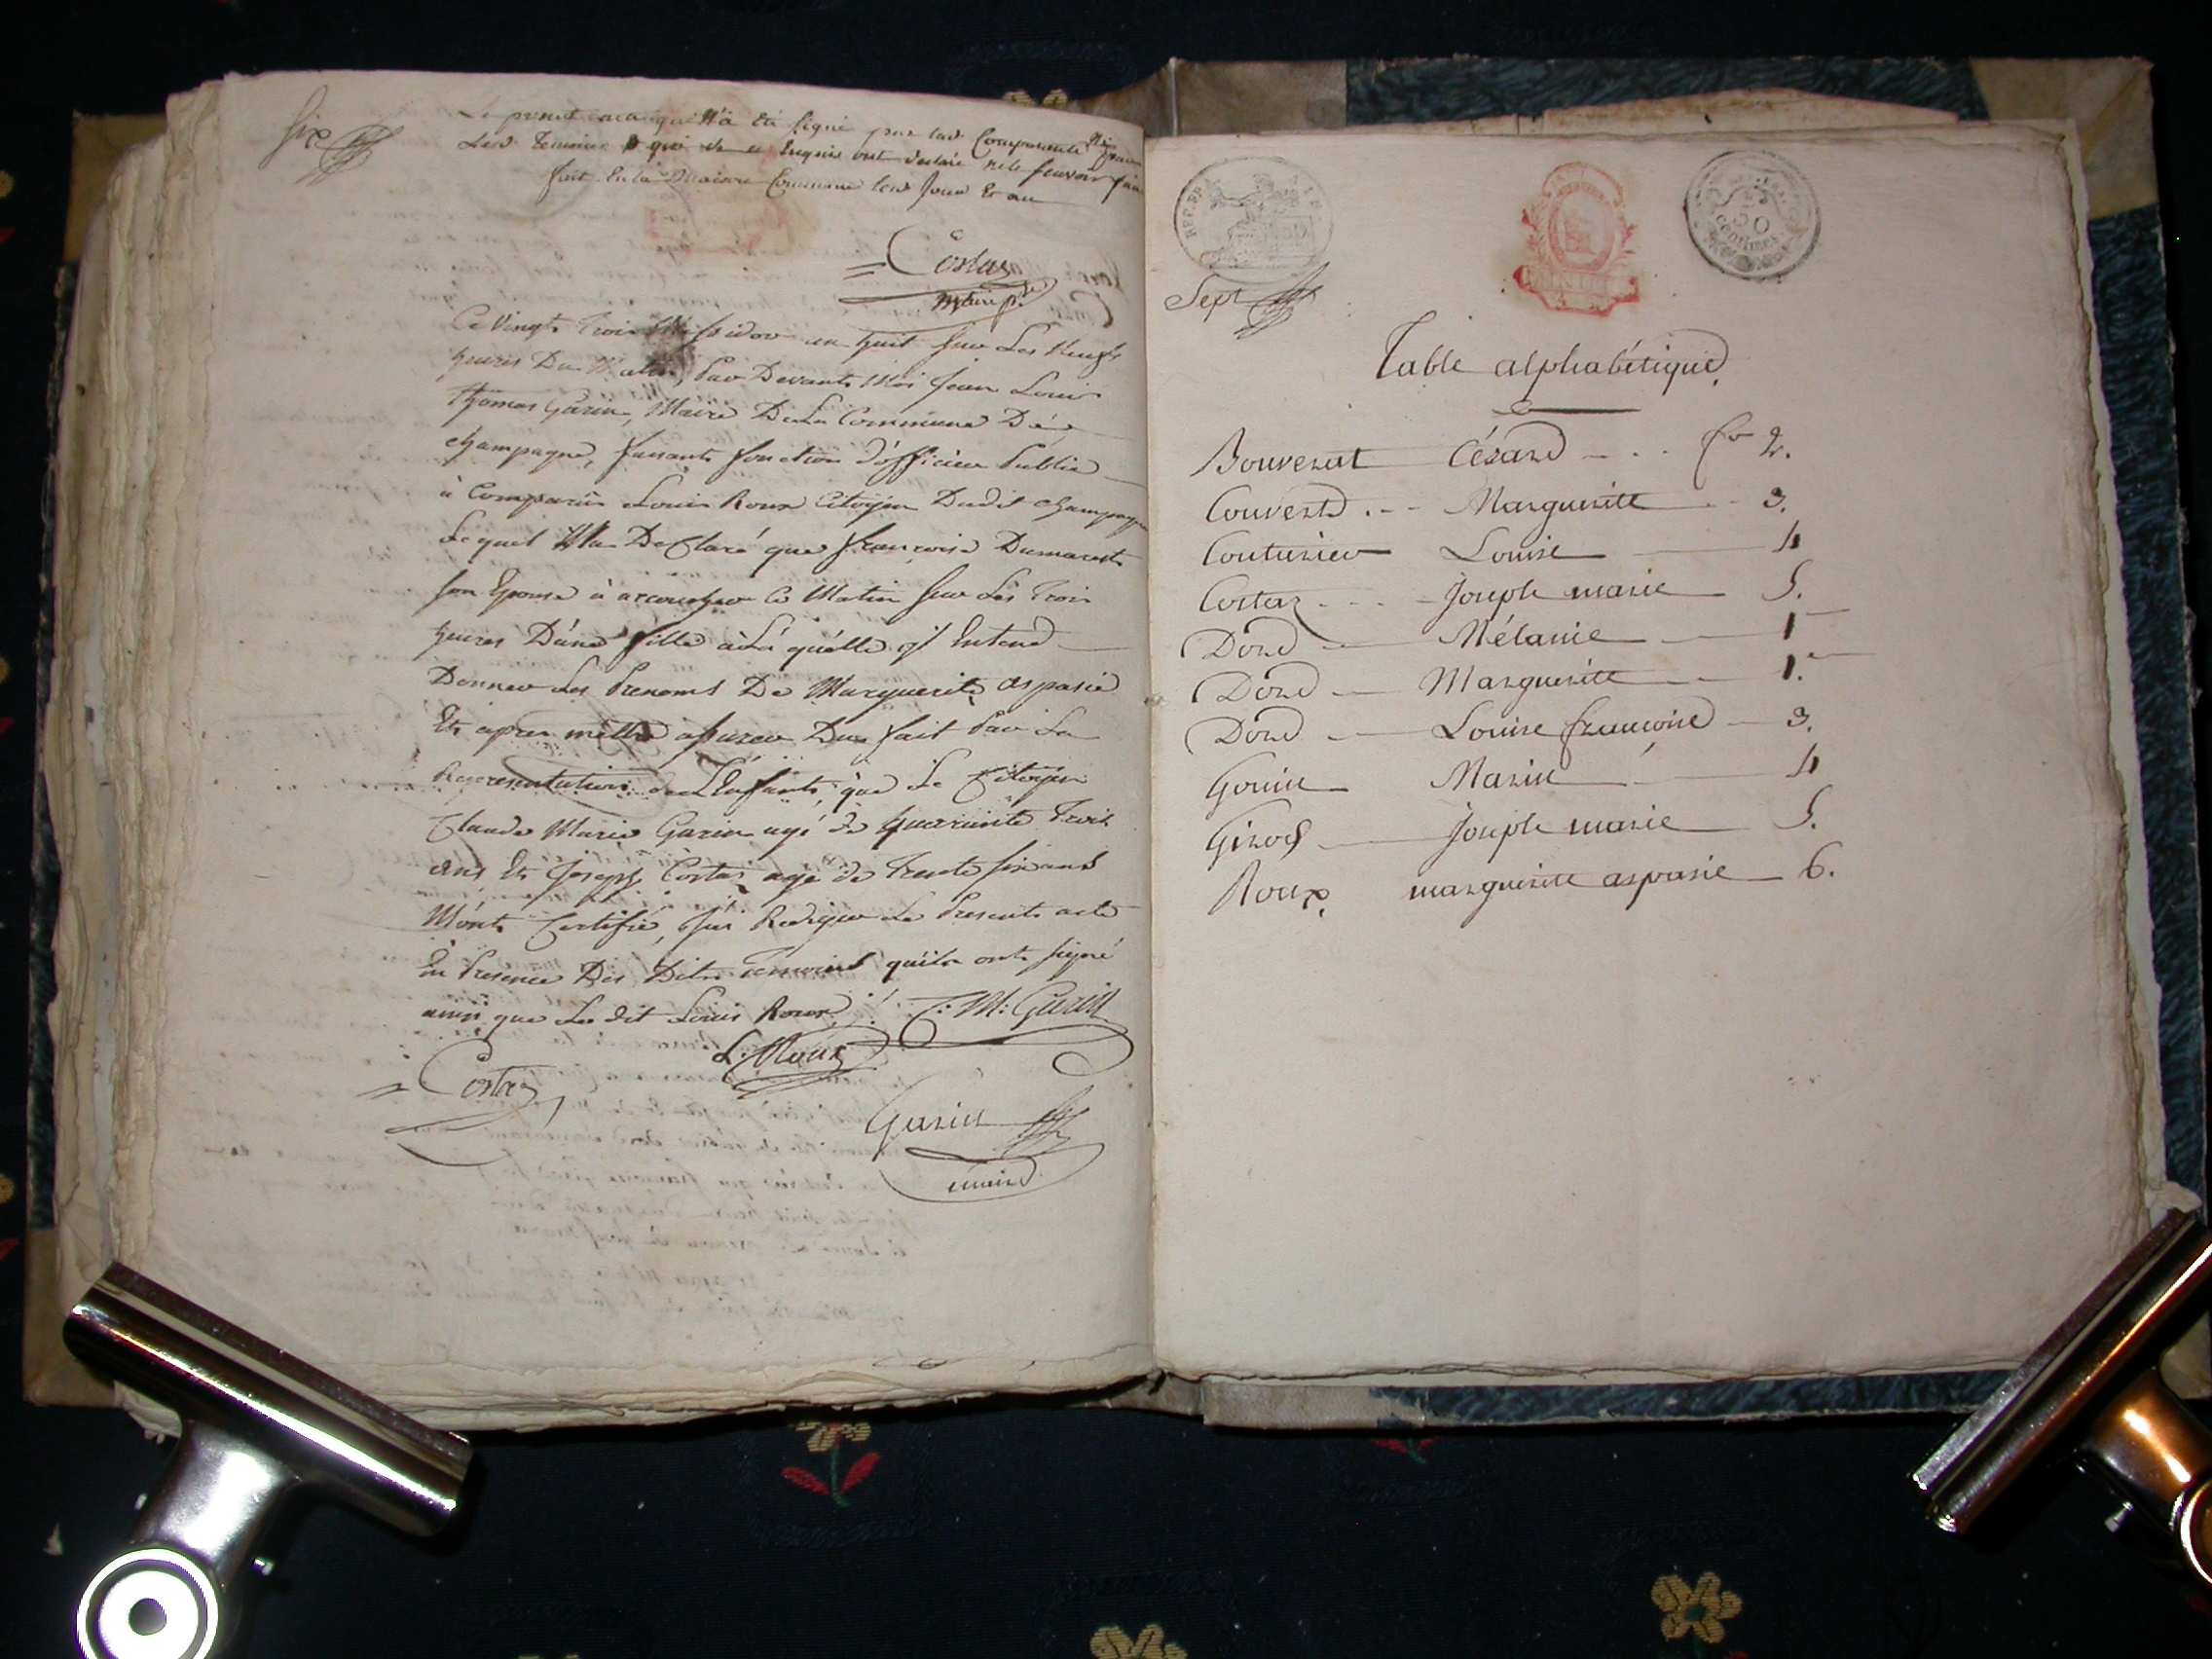 six
Le present acte qui n'a été signé par lad. Comparante ni par
Lesd Temoins qui de ce Enquis ont declaré ne le scavoir faire
fait En la Maison Commune lesd Jour Et an
Costaz
maire p.
Ce Vingts Trois Messidor an huit sur Les Neufs
heures Du Matin, Par Devants Moi Jean Louis
Thomas Garin, Maire De La Commune De
champagne, faisants fonction d'officier Public
à Comparûs Louis Roux Citoyen Dudit champagne
Lequel M'a Declaré que francoise Dumarests
son Epouse à accoucher Ce Matin sur Les Trois
heures D'une fille à La quélle il Entend
Donner Les Prenoms De Marguerite aspasie
Ets apres mêttre assurer Du fait Par La
Representation de L'Enfants, que Le Citoyen
Claude Marie Garin agé de quarante Trois
ans Ets Joseph Costaz agé de Trente six ans
M'onts Certifié, J'ai Rediger Le Presents acte
En Presence Des Dits Temoins qu'ils onts signé
ainsi que Le dit Louis Roux
C: M: Garin
L. Roux
Costaz
Garin
maire
REP. FRA
50
centimes
Sept
Table alphabétique
Bouverat Césard - . . fo 2.
Couvert . - - Marguerite - - 3.
Couturier Louise 4
Costaz . . . - Joseph marie 5.
Dord - Mélanie - 1
Dord - Marguerite - - 1.
Dord - Louise françoise - 3.
Gouin Marin 4
Girod Joseph marie 5.
Roux, marguerite aspasie 6.